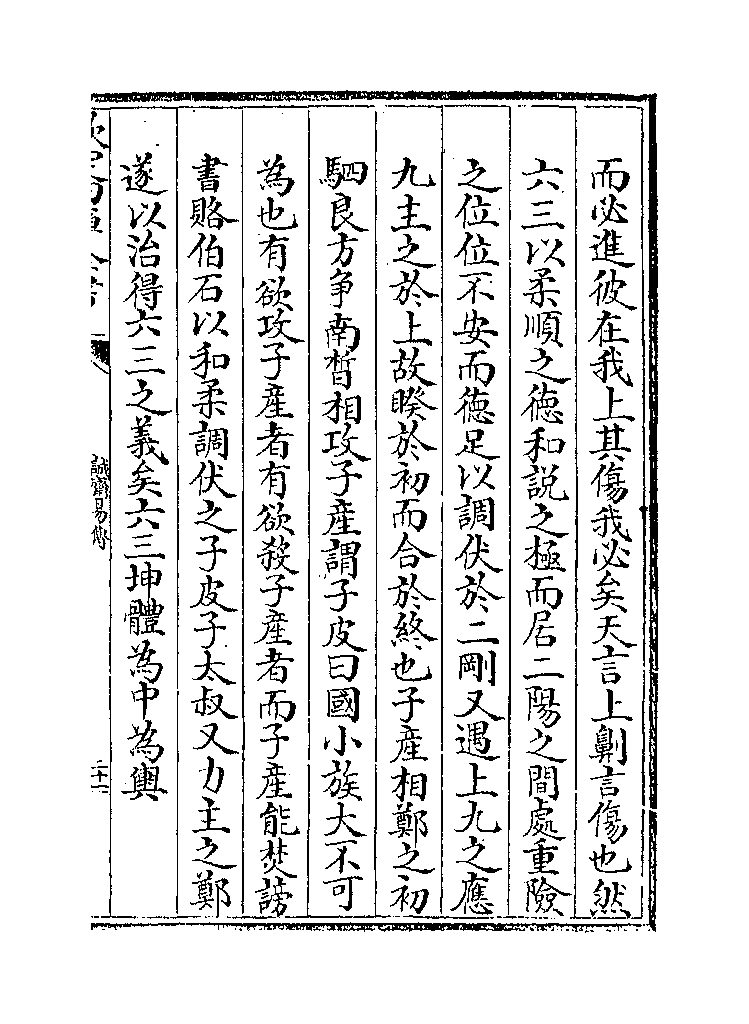 而必進彼在我上其傷我必矣天言上劓言傷也然
六三以柔順之德和説之極而居二陽之間處重險
之位位不安而德足以調伏於二剛又遇上九之應
九主之於上故睽於初而合於終也子産相鄭之初
駟良方争南晳相攻子産謂子皮曰國小族大不可
為也有欲攻子産者有欲殺子産者而子産能焚謗
書賂伯石以和柔調伏之子皮子太叔又力主之鄭
遂以治得六三之義矣六三坤體為中為輿
誠齋易傳